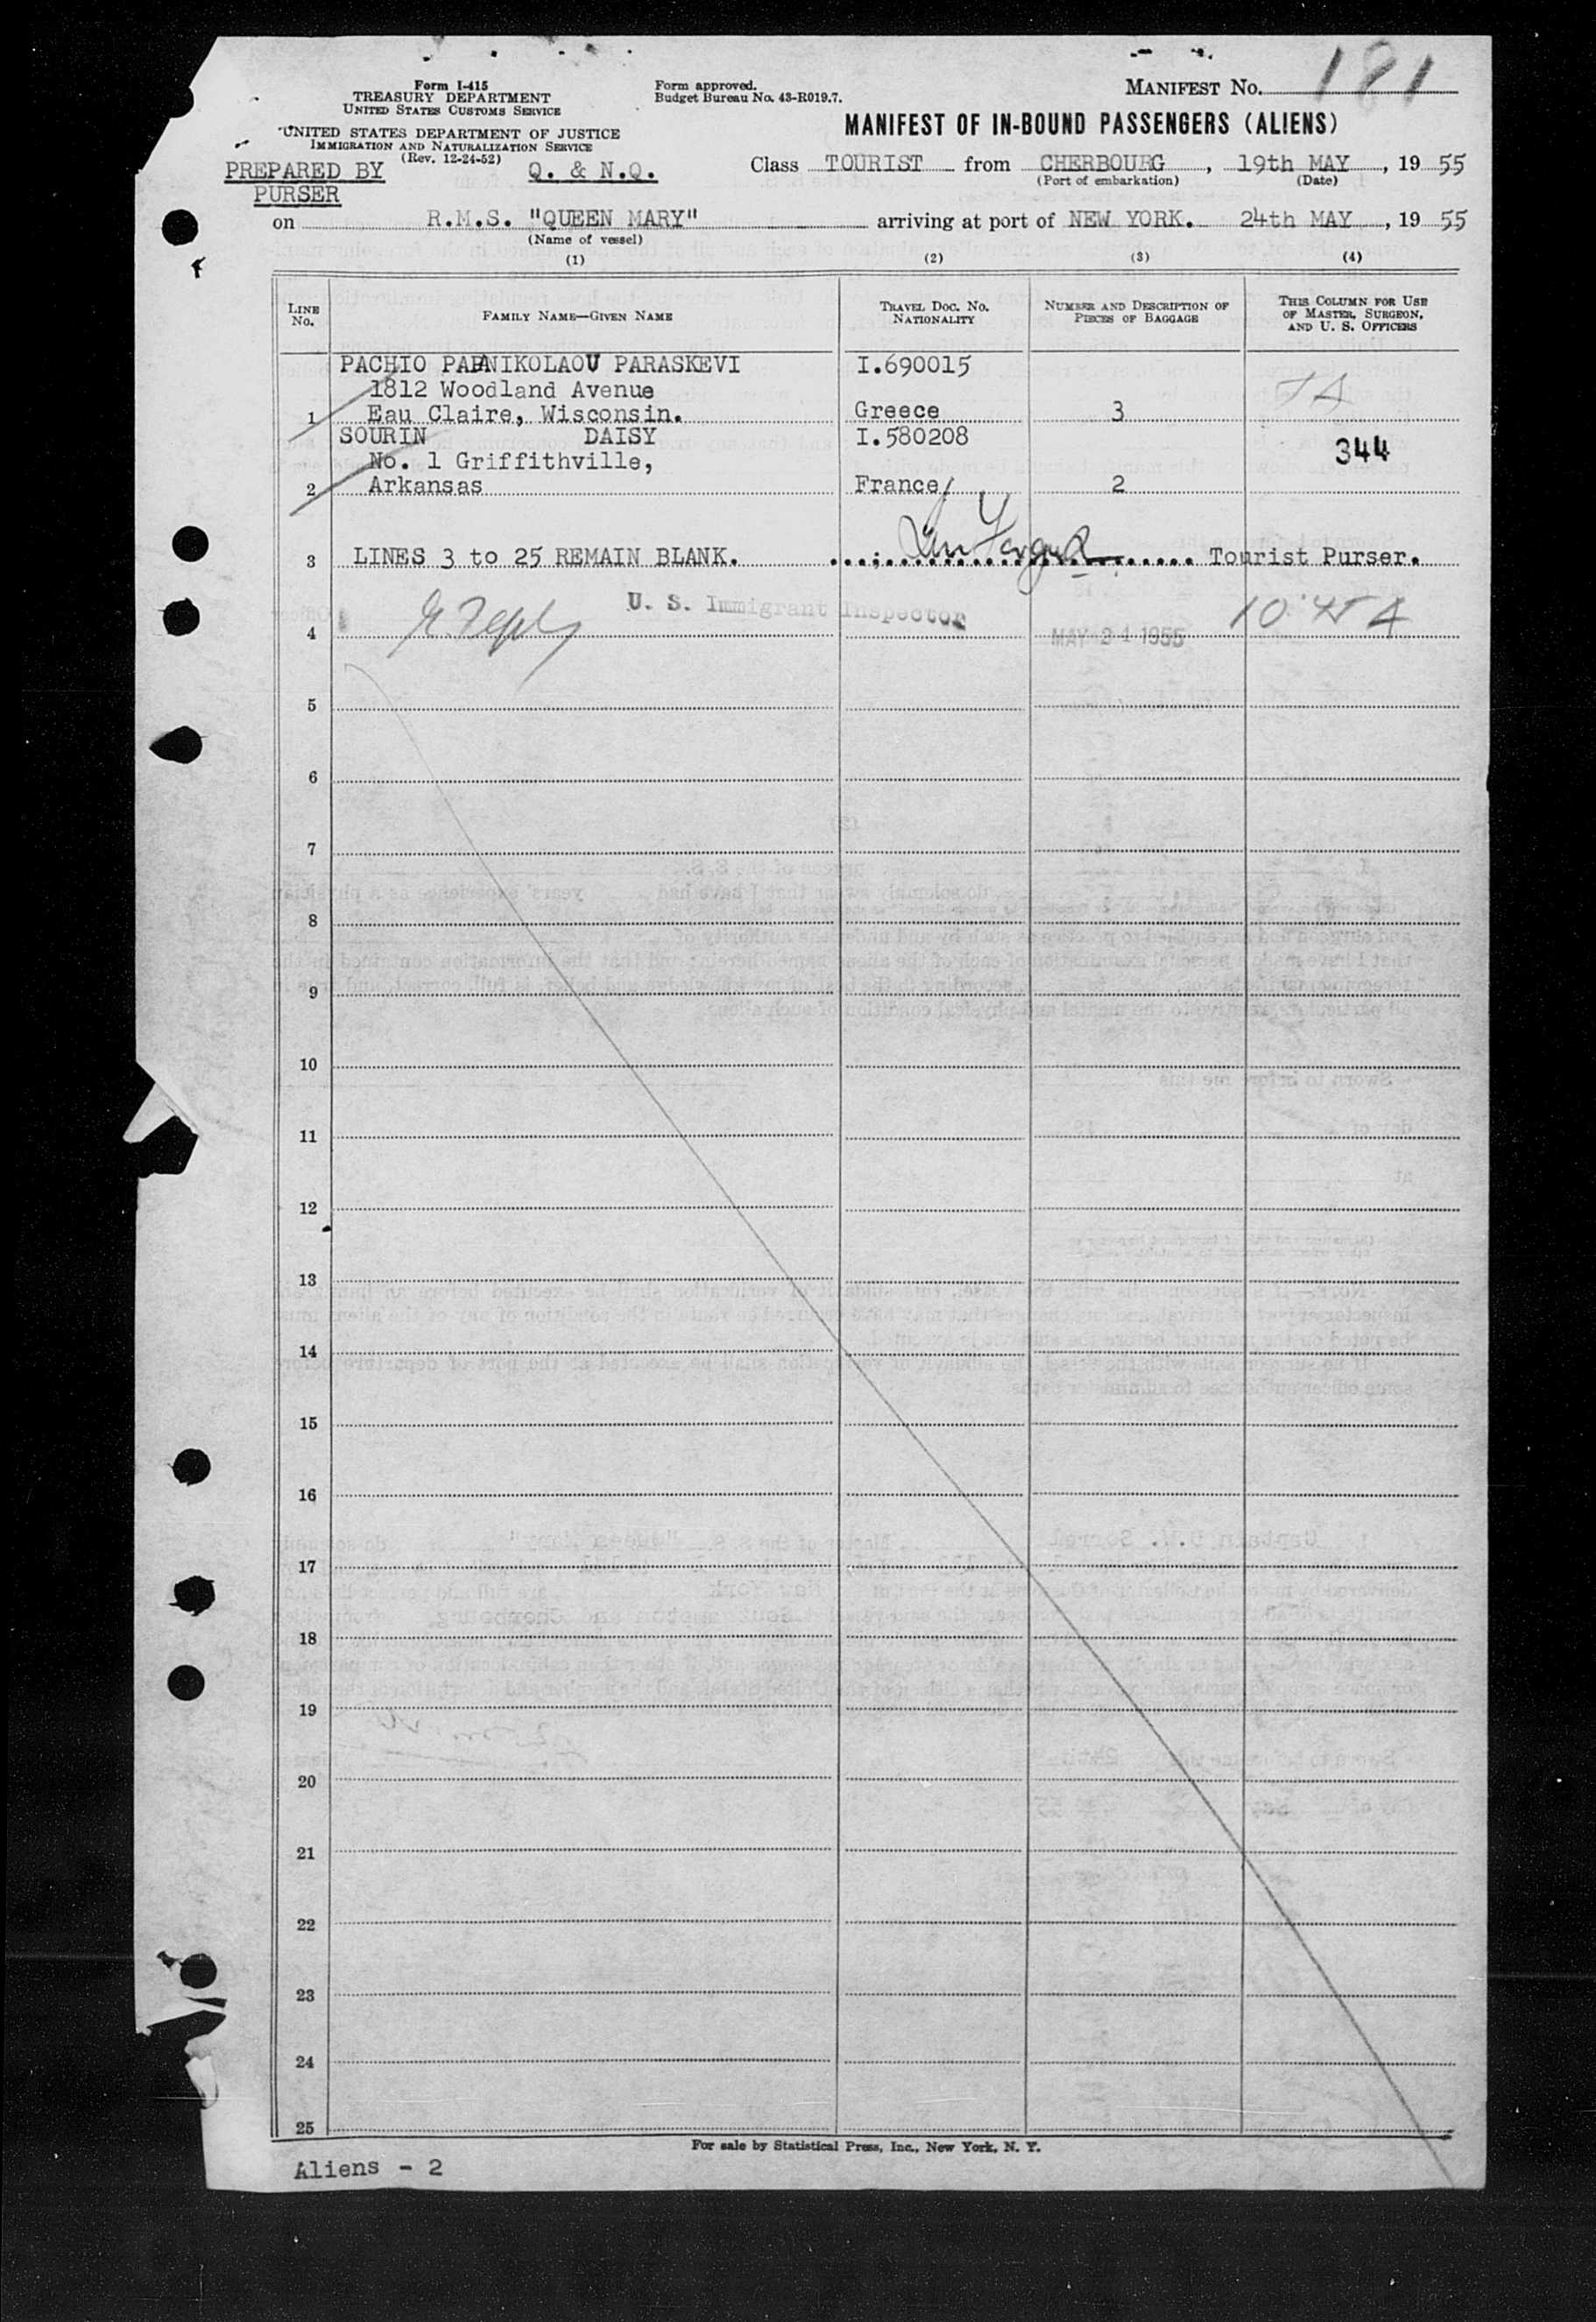 MANIFEST NO. 181
Form I-415
TREASURY DEPARTMENT
UNITED STATES CUSTOMS SERVICE
Form approved.
Budget Bureau No. 43-R019.7.
UNITED STATES DEPARTMENT OF JUSTICE
IMMIGRATION AND NATURALIZATION SERVICE
(Rev. 12-24-52)
MANIFEST OF IN-BOUND PASSENGERS (ALIENS)
PREPARED BY
PURSER
Q. & N.Q.
Class TOURIST from CHERBOURG, 19th MAY, 19 55
(Port of embarkation) (Date)
on R.M.S. "QUEEN MARY" arriving at port of NEW YORK. 24th MAY, 19 55
(Name of vessel)
(1) (2) (3) (4)
LINE NO. FAMILY NAME—GIVEN NAME TRAVEL DOC. NO. NATIONALITY NUMBER AND DESCRIPTION OF PIECES OF BAGGAGE THIS COLUMN FOR USE OF MASTER, SURGEON, AND U. S. OFFICERS
PACHIO PAPANIKOLAOU PARASKEVI I.690015
1812 Woodland Avenue
1 Eau Claire, Wisconsin. Greece 3
SOURIN DAISY I.580208 344
No. 1 Griffithville,
2 Arkansas France 2
3 LINES 3 to 25 REMAIN BLANK. Tourist Purser.
U. S. Immigrant Inspector
4 MAY 24 1955 10:45 A
5
6
7
8
9
10
11
12
13
14
15
16
17
18
19
20
21
22
23
24
25
For sale by Statistical Press, Inc., New York, N. Y.
Aliens - 2